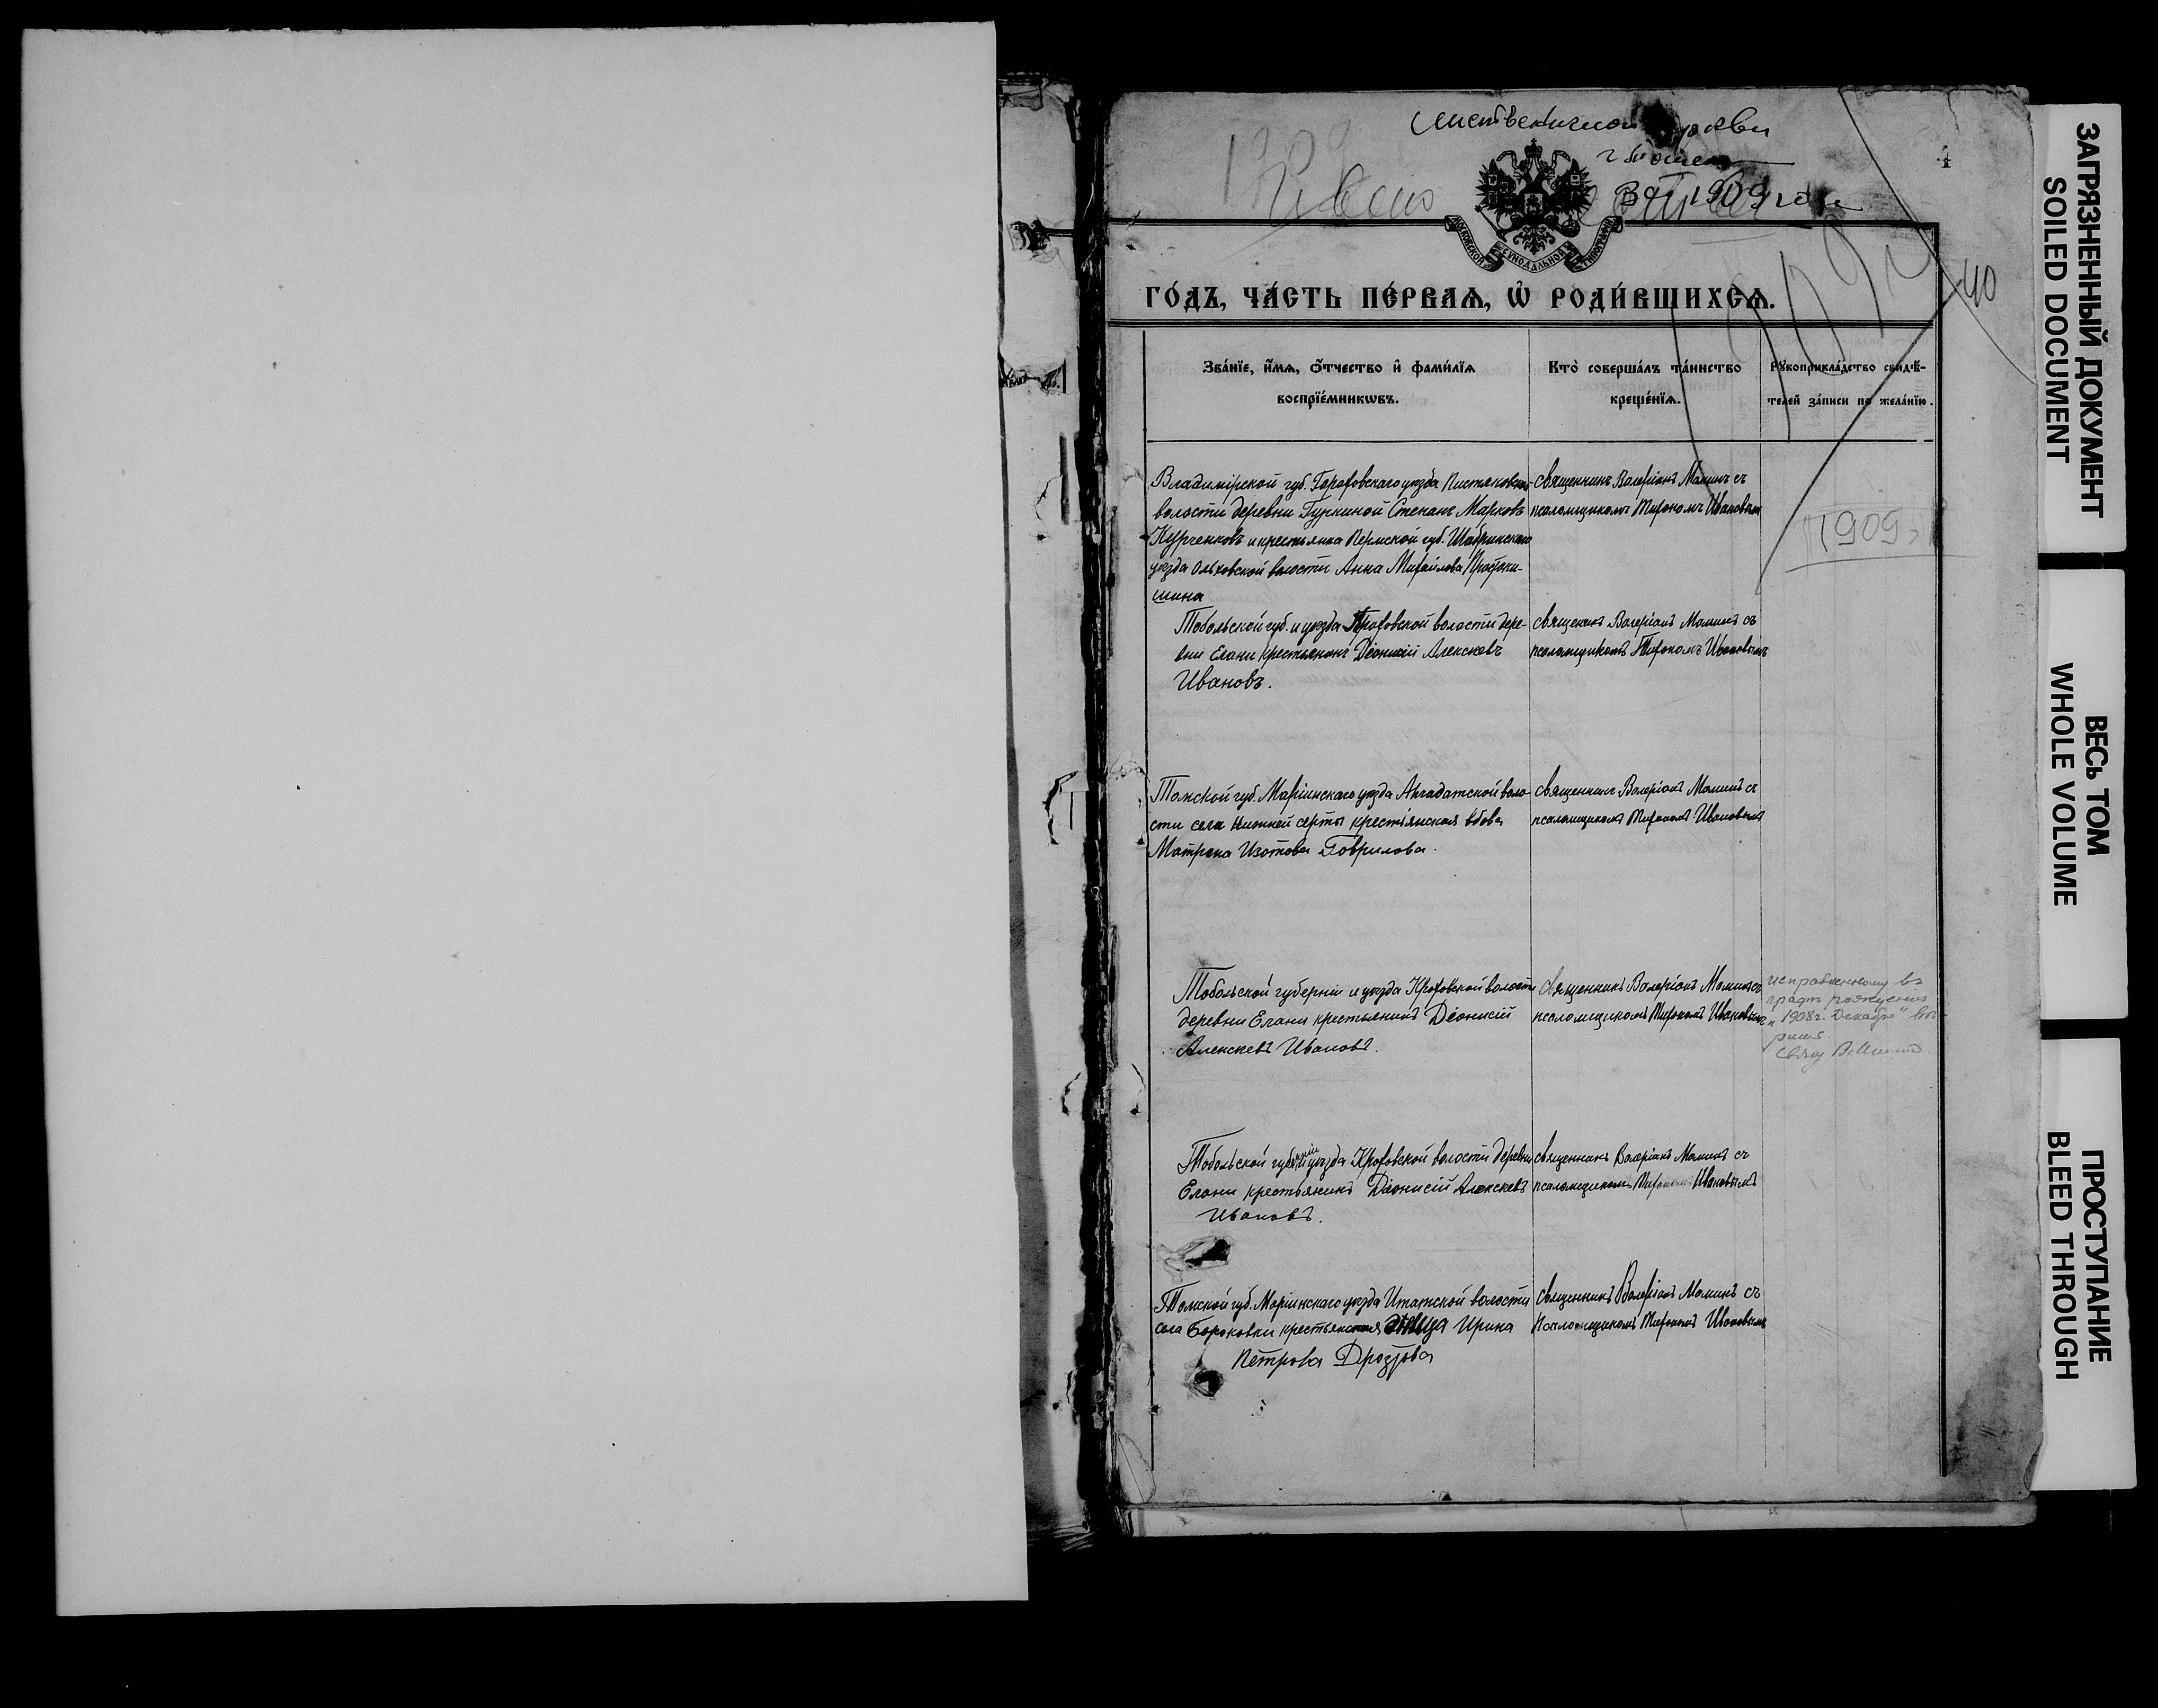 за 1909 годъ
4
МОСКОВСКОЙ СѴНОДАЛЬНОЙ ТИПОГРАФІИ
40
ГО́ДЪ, ЧА́СТЬ ПЕ́РВАѦ, Ѡ҆ РОДИ́ВШИХСѦ.
Зва́нїе, и҆́мѧ, ѻ҆́тчество и҆ фами́лїѧ
воспрїе́мникѡвъ.
Кто̀ соверша́лъ та́инство
креще́нїѧ.
Рꙋкоприкла́дство свидѣ́-
телей за́писи по жела́нїю.
Владимірской губ. Гороховскаго уѣзда
волости деревни Гуркиной Степанъ Марковъ
Курченковъ и крестьянка Пермской губ. Шадринскаго
уѣзда Ольховской волости Анна Михайлова
шина
Священникъ Валеріанъ Маминъ съ
псаломщикомъ Мирономъ Ивановымъ
1909
Тобольской губ. и уѣзда волости дере-
вни Елани крестьянинъ Діонисій Алексѣевъ
Ивановъ.
Священникъ Валеріанъ Маминъ съ
псаломщикомъ Мирономъ Ивановымъ
Томской губ. Маріинскаго уѣзда воло-
сти села Нижней серты крестьянская вдова
Матрона Изотова Гаврилова.
Священникъ Валеріанъ Маминъ съ
псаломщикомъ Мирономъ Ивановымъ
Тобольской губерніи и уѣзда волости
деревни Елани крестьянинъ Діонисій
Алексѣевъ Ивановъ.
Священникъ Валеріанъ Маминъ съ
псаломщикомъ Мирономъ Ивановымъ
исправленному въ
графѣ рожденія
„1908 г. Декабрь"
Тобольской губерніи уѣзда волости деревни
Елани крестьянинъ Діонисій Алексѣевъ
Ивановъ.
Священникъ Валеріанъ Маминъ съ
псаломщикомъ Мирономъ Ивановымъ
Томской губ. Маріинскаго уѣзда Итатской волости
села Боровки крестьянская дѣвица Ирина
Петрова Дроздова
Священникъ Валеріанъ Маминъ съ
псаломщикомъ Мирономъ Ивановымъ
ЗАГРЯЗНЕННЫЙ ДОКУМЕНТ
SOILED DOCUMENT
ВЕСЬ ТОМ
WHOLE VOLUME
ПРОСТУПАНИЕ
BLEED THROUGH